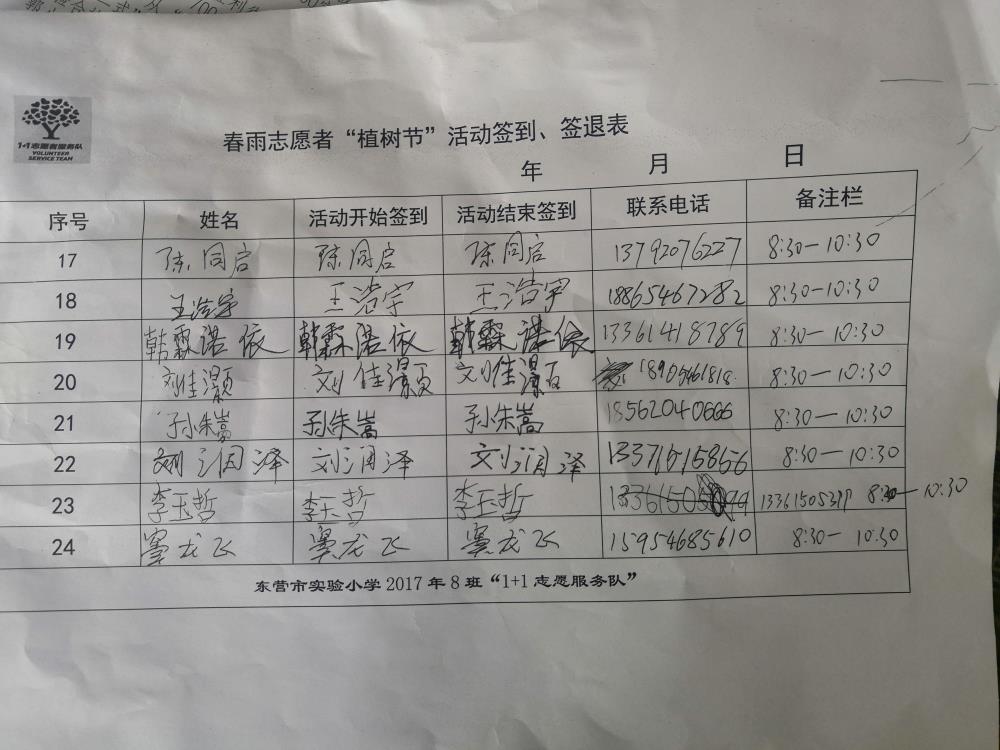 1+1志愿者服务队
VOLUNTEER
SERVICE TEAM
春雨志愿者“植树节”活动签到、签退表
年 月 日
序号 姓名 活动开始签到 活动结束签到 联系电话 备注栏
17 陈同启 陈同启 陈同启 13792076227 8:30-10:30
18 王浩宇 王浩宇 王浩宇 18865467282 8:30-10:30
19 韩霖诺依 韩霖诺依 韩霖诺依 13361418789 8:30-10:30
20 刘佳灏 刘佳灏 刘佳灏 18905461818 8:30-10:30
21 孙朱嵩 孙朱嵩 孙朱嵩 18562040666 8:30-10:30
22 刘润泽 刘润泽 刘润泽 13371515856 8:30-10:30
23 李玉哲 李玉哲 李玉哲 8:30-10:30
24 窦龙飞 窦龙飞 窦龙飞 15954685610 8:30-10:30
东营市实验小学2017年8班“1+1志愿服务队”